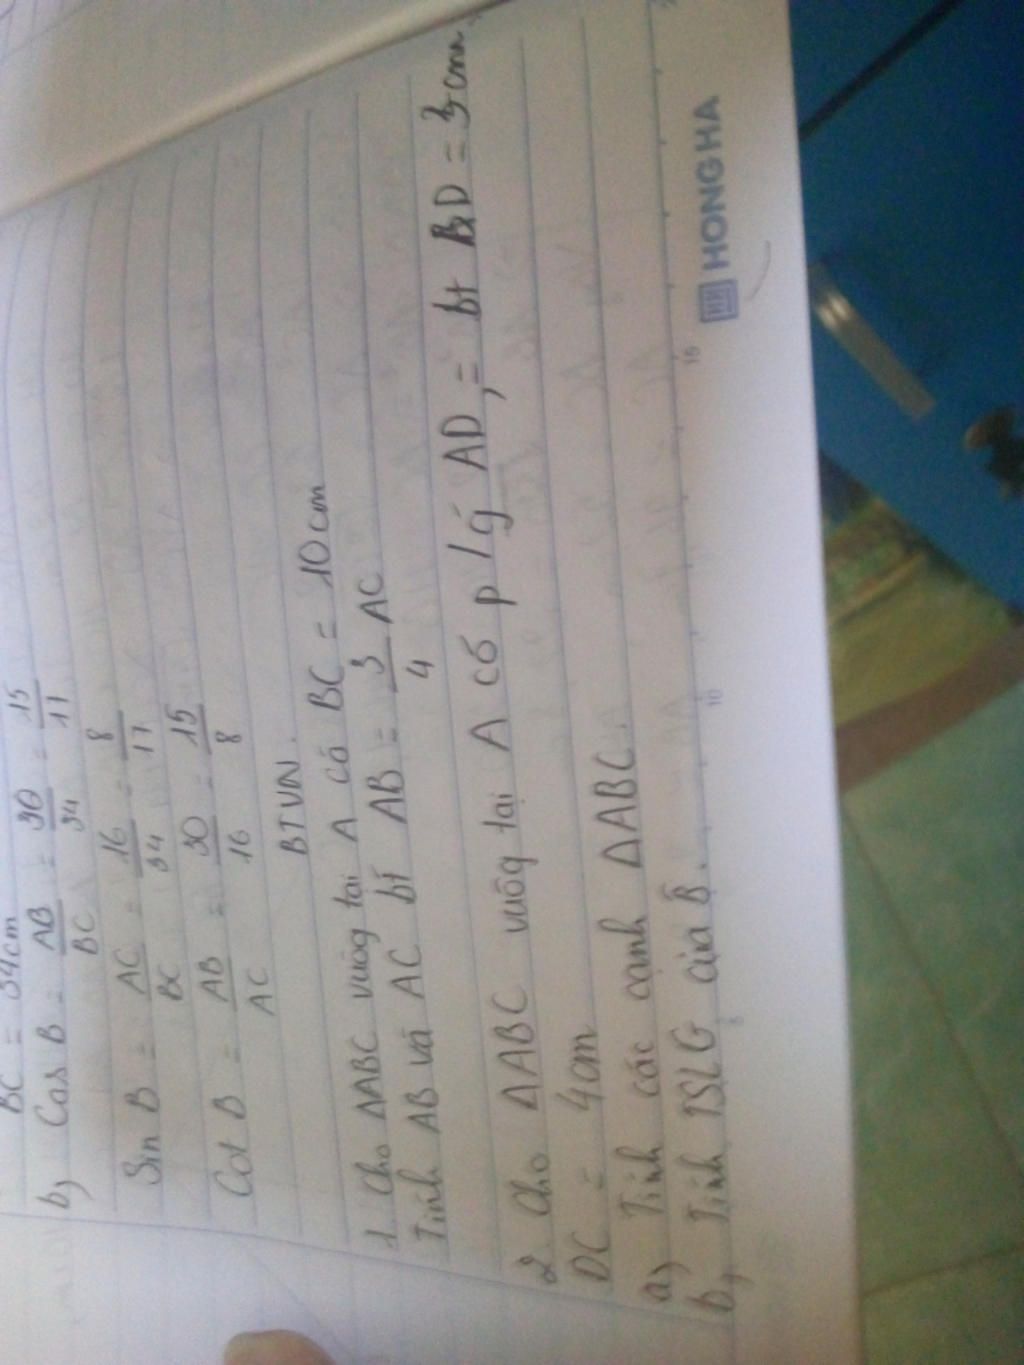 BC = 34cm
b, Cos B = AB/BC = 30/34 = 15/17
Sin B = AC/BC = 16/34 = 8/17
Cot B = AB/AC = 30/16 = 15/8
BTVN.
1 Cho ΔABC vuông tại A có BC = 10cm
Tính AB và AC bt AB = 3/4 AC
2 Cho ΔABC vuôg tại A có p/g AD, = bt BD = 3cm,
DC = 4cm
a, Tính các cạnh ΔABC.
b, Tính TSLG của B̂.
5 10 15
HONG HA